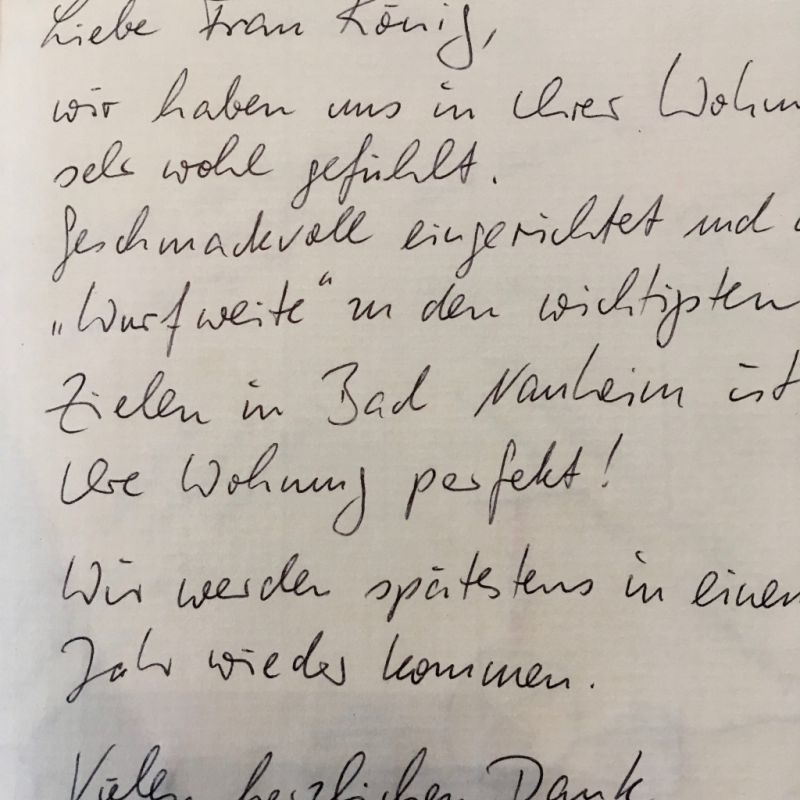 Liebe Frau König,
wir haben uns in Ihrer Wohn
sehr wohl gefühlt.
Geschmackvoll eingerichtet und
„Wurfweite“ zu den wichtigsten
Zielen in Bad Nauheim ist
Ihre Wohnung perfekt!
Wir werden spätestens in einem
Jahr wieder kommen.
Vielen herzlichen Dank